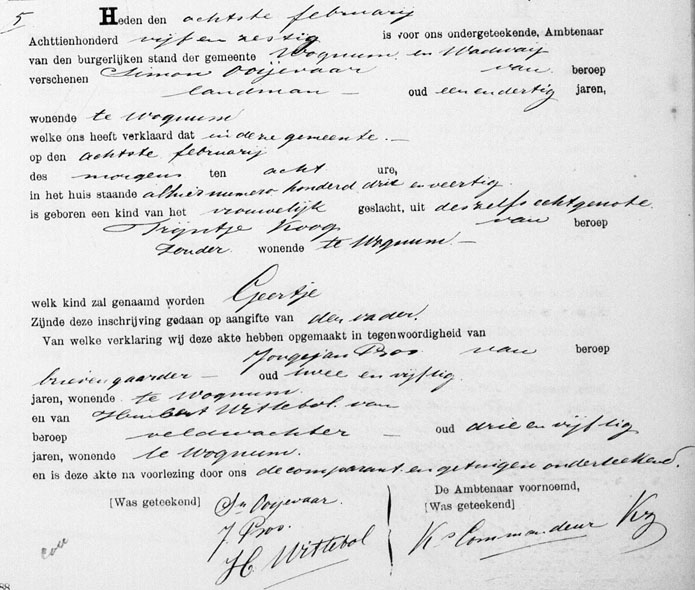 5
Heden den achtste februarij
Achttienhonderd vijf en zestig is voor ons ondergeteekende, Ambtenaar
van den burgerlijken stand der gemeente Wognum en Wadwaij
verschenen Simon Ooijevaar van beroep
landman — oud een en dertig jaren,
wonende te Wognum
welke ons heeft verklaard dat in deze gemeente. —
op den achtste februarij
des morgens ten acht ure,
in het huis staande alhier numero honderd drie en veertig
is geboren een kind van het vrouwelijk geslacht, uit deszelfs echtgenote
Trijntje Koog van beroep
zonder wonende te Wognum —
welk kind zal genaamd worden Geertje
Zijnde deze inschrijving gedaan op aangifte van den vader.
Van welke verklaring wij deze akte hebben opgemaakt in tegenwoordigheid van
Jongejan Pros van beroep
brievengaarder — oud twee en vijftig
jaren, wonende te Wognum
en van Wittebol van
beroep veldwachter — oud drie en vijftig
jaren, wonende te Wognum.
en is deze akte na voorlezing door ons de comparant en getuigen onderteekend.
[Was geteekend] Sn Ooijevaar. De Ambtenaar voornoemd,
J. Pros. [Was geteekend]
H Wittebol Ks Commandeur Kz
88